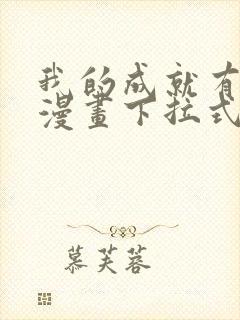 我的成就有
漫畫下拉式
慕芙蓉